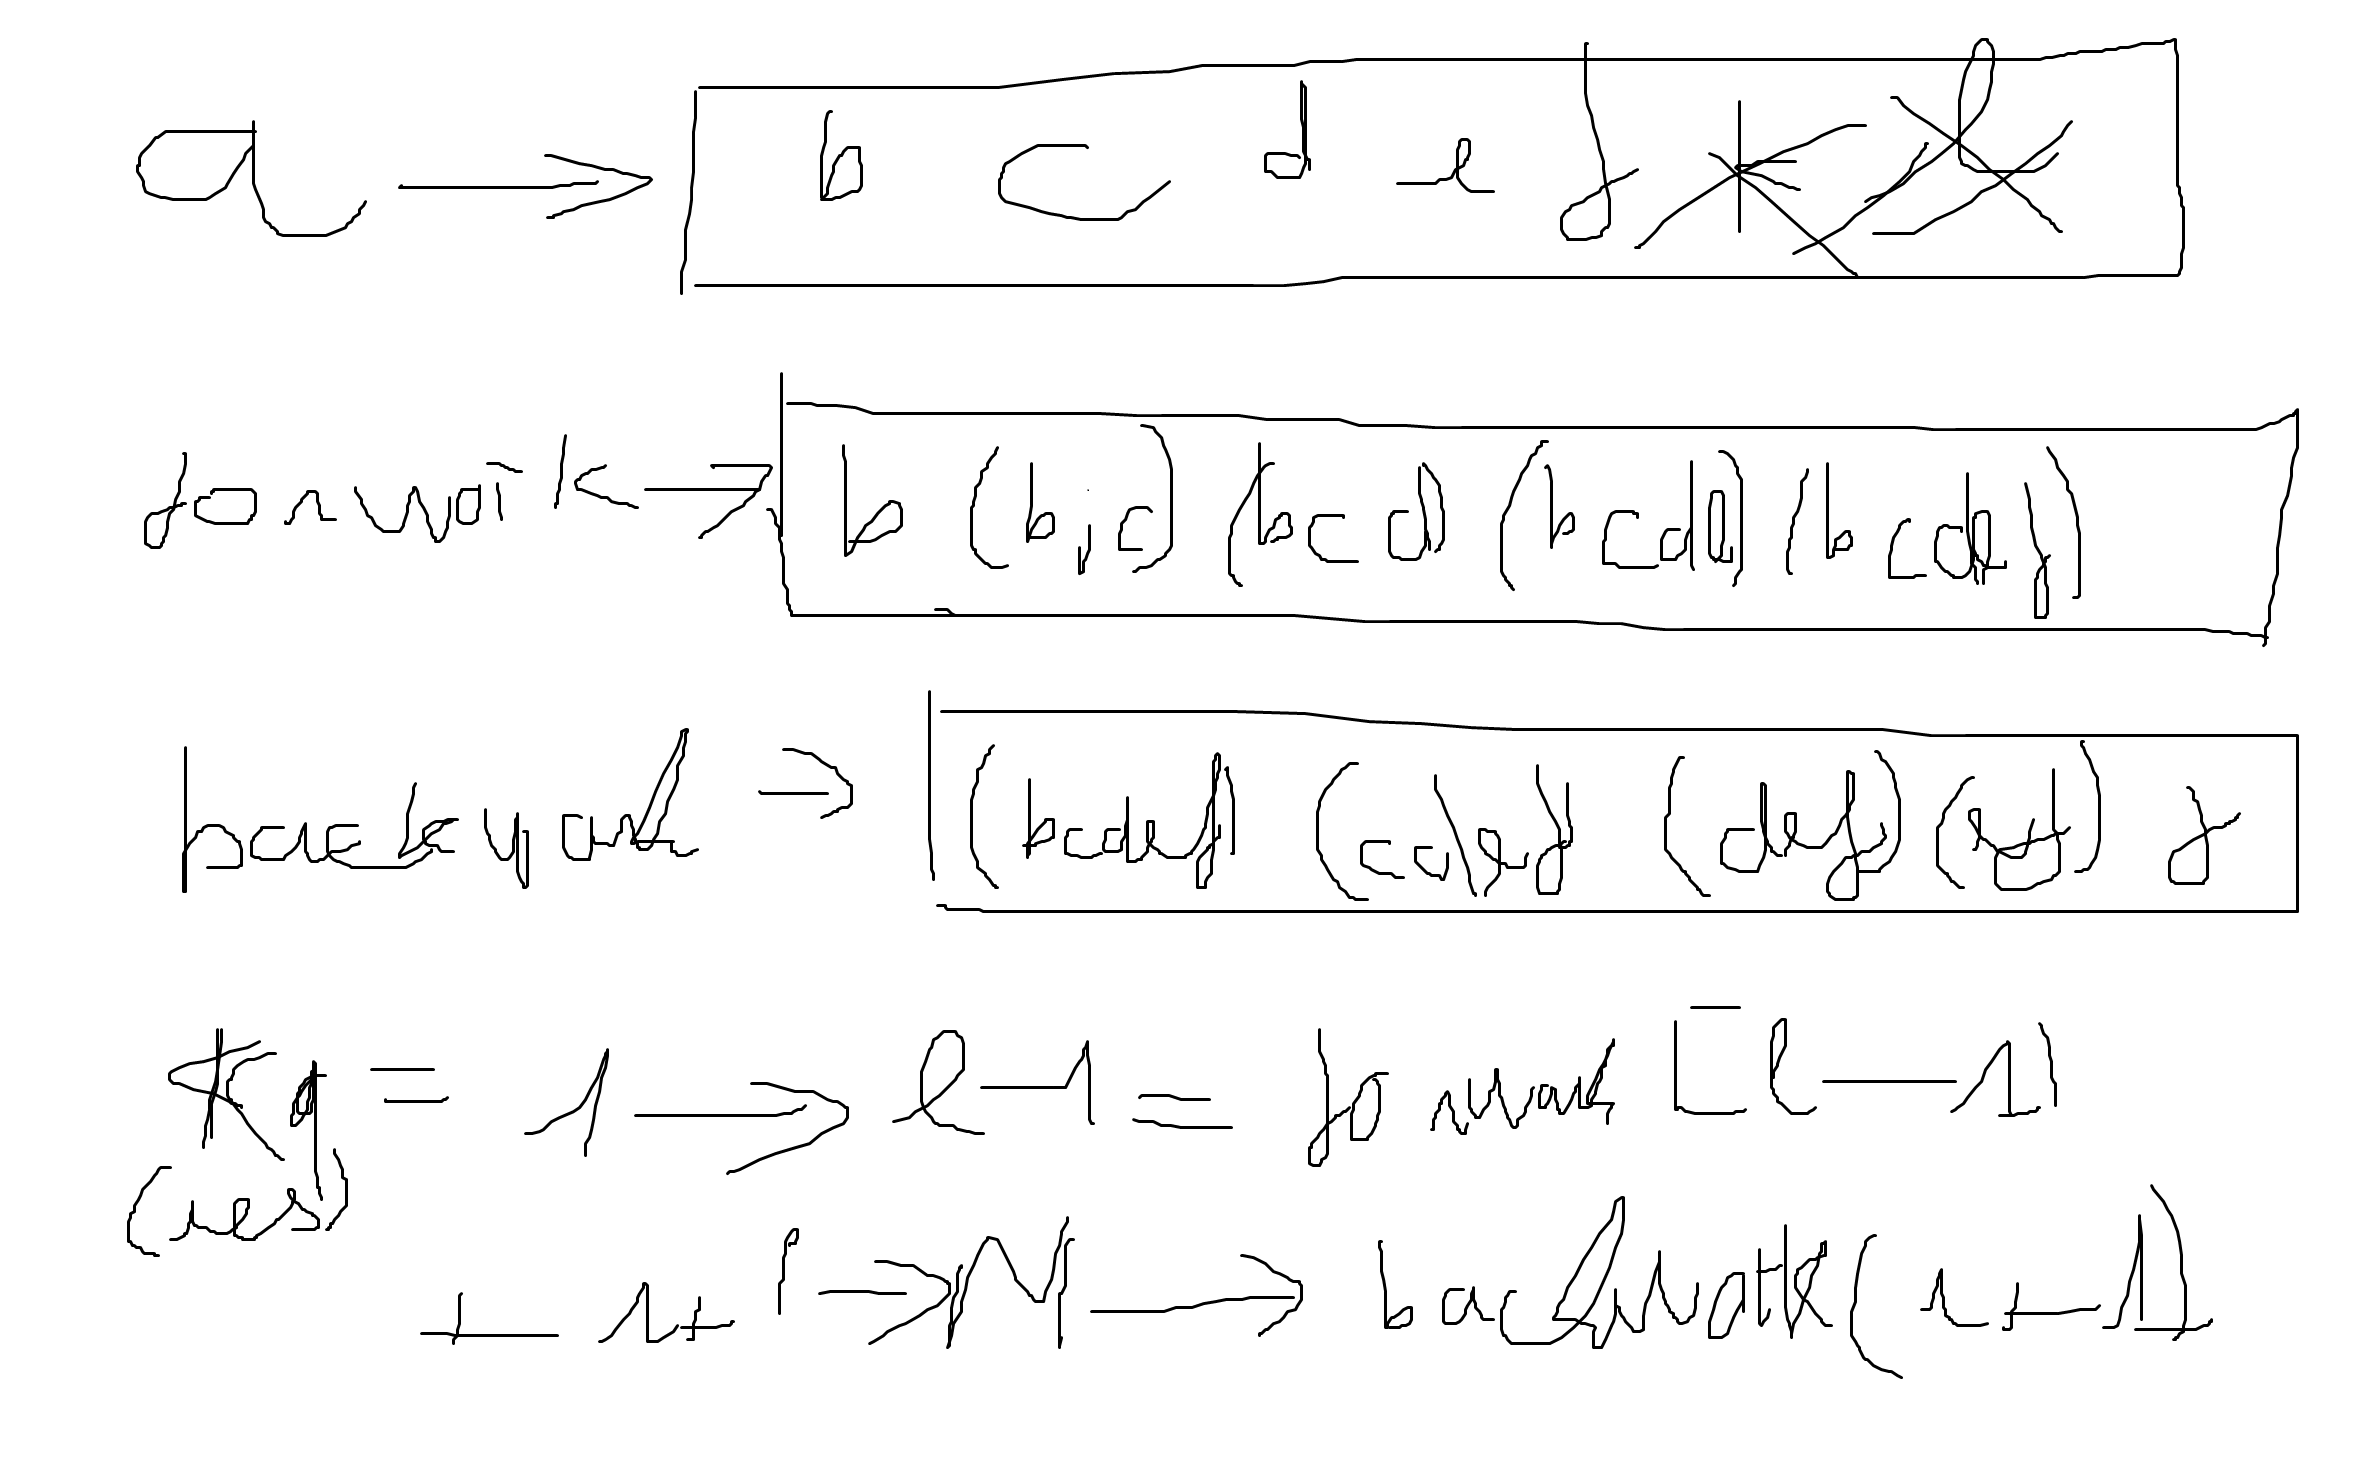 a → b c d e f
forwork → b (b,c) (bcd) (bcde) (bcdef)
backward → (bcdef) (cdef) (def) (ef) f
= 1 → l-1 = forwork [l-1)
(res)
+ r+1 → N → backwork(r+1)